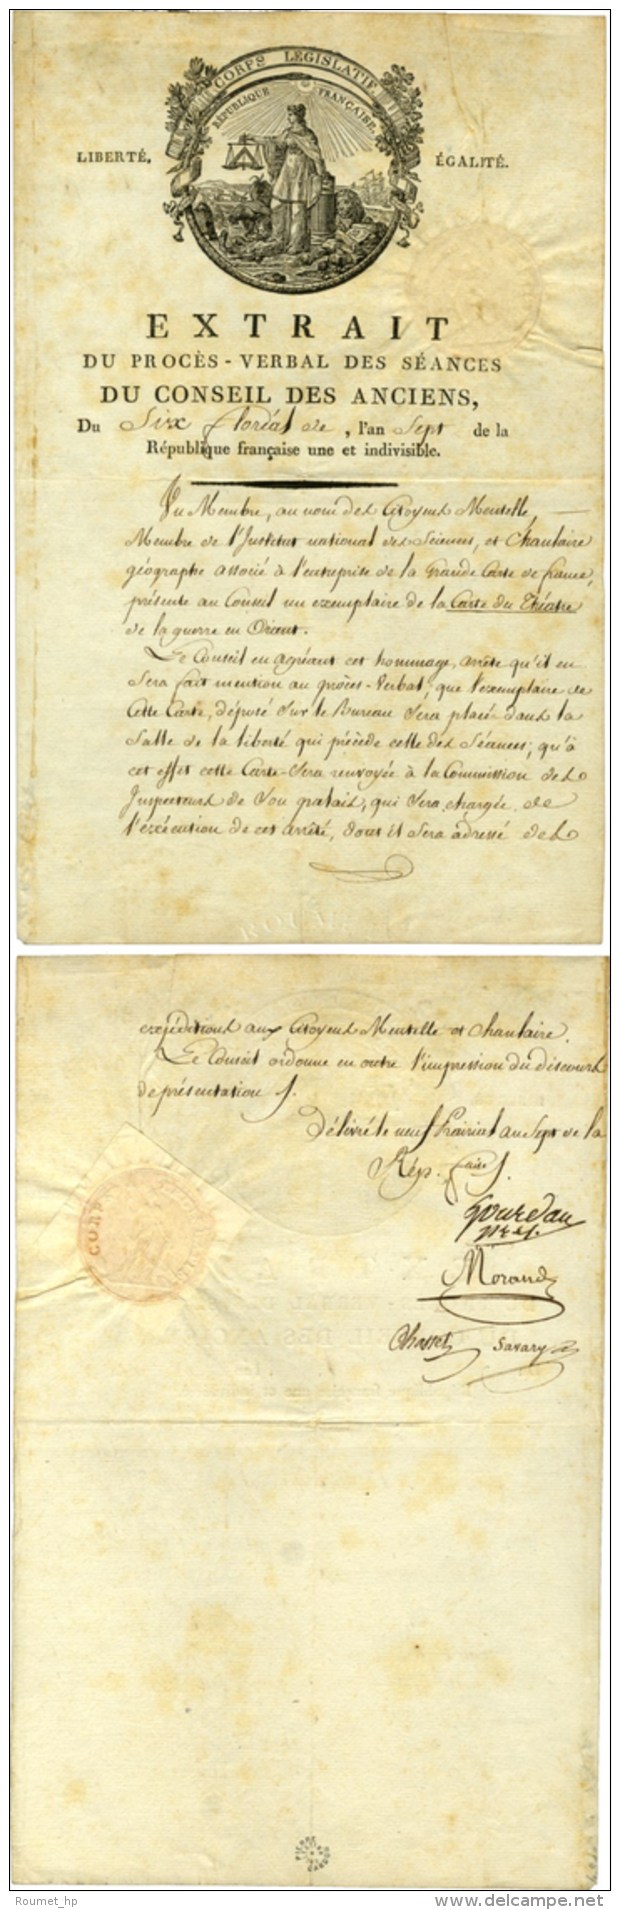 CORPS LÉGISLATIF.
RÉPUBLIQUE FRANÇAISE.
LIBERTÉ, ÉGALITÉ.
EXTRAIT
DU PROCÈS-VERBAL DES SÉANCES
DU CONSEIL DES ANCIENS,
Du Six floréal , l'an Sept de la
République française une et indivisible.
Un Membre, au nom des Citoyens Mentelle,
Membre de l'Institut national des Sciences, et Chanlaire
géographe associé à l'entreprise de la Grande Carte de france,
présente au Conseil un exemplaire de la Carte du Théatre
de la guerre en Orient.
Le Conseil en agréant cet hommage, arrête qu'il en
Sera fait mention au procès-Verbal; que l'exemplaire de
Cette Carte, déposé Sur le Bureau Sera placé dans la
Salle de la liberté qui précède celle des Séances; qu'à
cet effet cette Carte Sera renvoyée à la Commission des
Inspecteurs de Son palais, qui Sera chargée de
l'exécution de cet arrêté, dont il Sera adressé des
expéditions aux Citoyens Mentelle et Chanlaire.
Le Conseil ordonne en outre l'impression du discours
de présentation
Délivré le neuf Prairial an Sept de la
Rép. faise
Gourdan
Morand
Chasset Savary
CORPS
Roumet_hp
delcampe.net